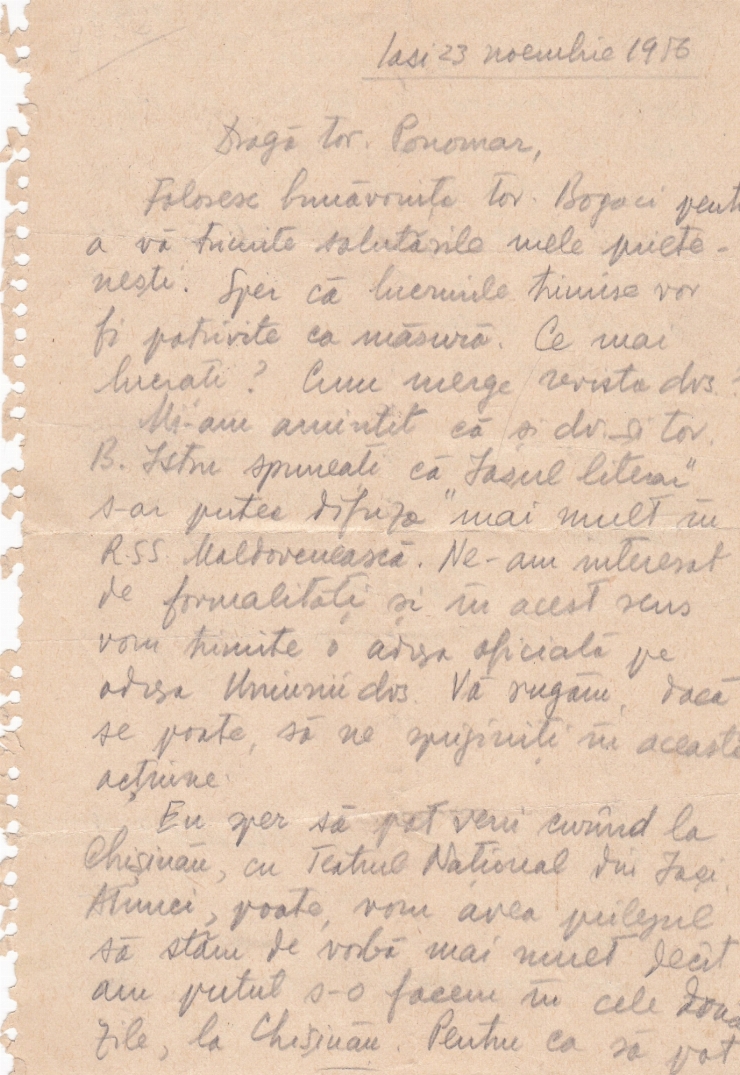 Iasi 23 noembrie 1956
Dragă tov. Ponomar,
Folosesc bunăvoința tov. Bogaci pentr
a vă trimite salutările mele priete-
nești. Sper că lucrurile trimise vor
fi potrivite ca măsură. Ce mai
lucrați? Cum merge revista dvs.?
Mi-am amintit că și dv. și tov.
B. Istru spuneați că Iașul literar"
s-ar putea difuza "mai mult în
RSS Moldovenească. Ne-am interesat
de formalități și în acest sens
vom trimite o adresa oficială pe
adresa Uniunii dvs. Vă rugăm, dacă
se poate, să ne sprijiniți în această
acțiune.
Eu sper să pot veni curînd la
Chișinău, cu Teatrul Național din Iași.
Atunci, poate, vom avea prilejul
să stăm de vorbă mai mult decît
am putut s-o facem în cele două
zile, la Chișinău. Pentru ca să pot